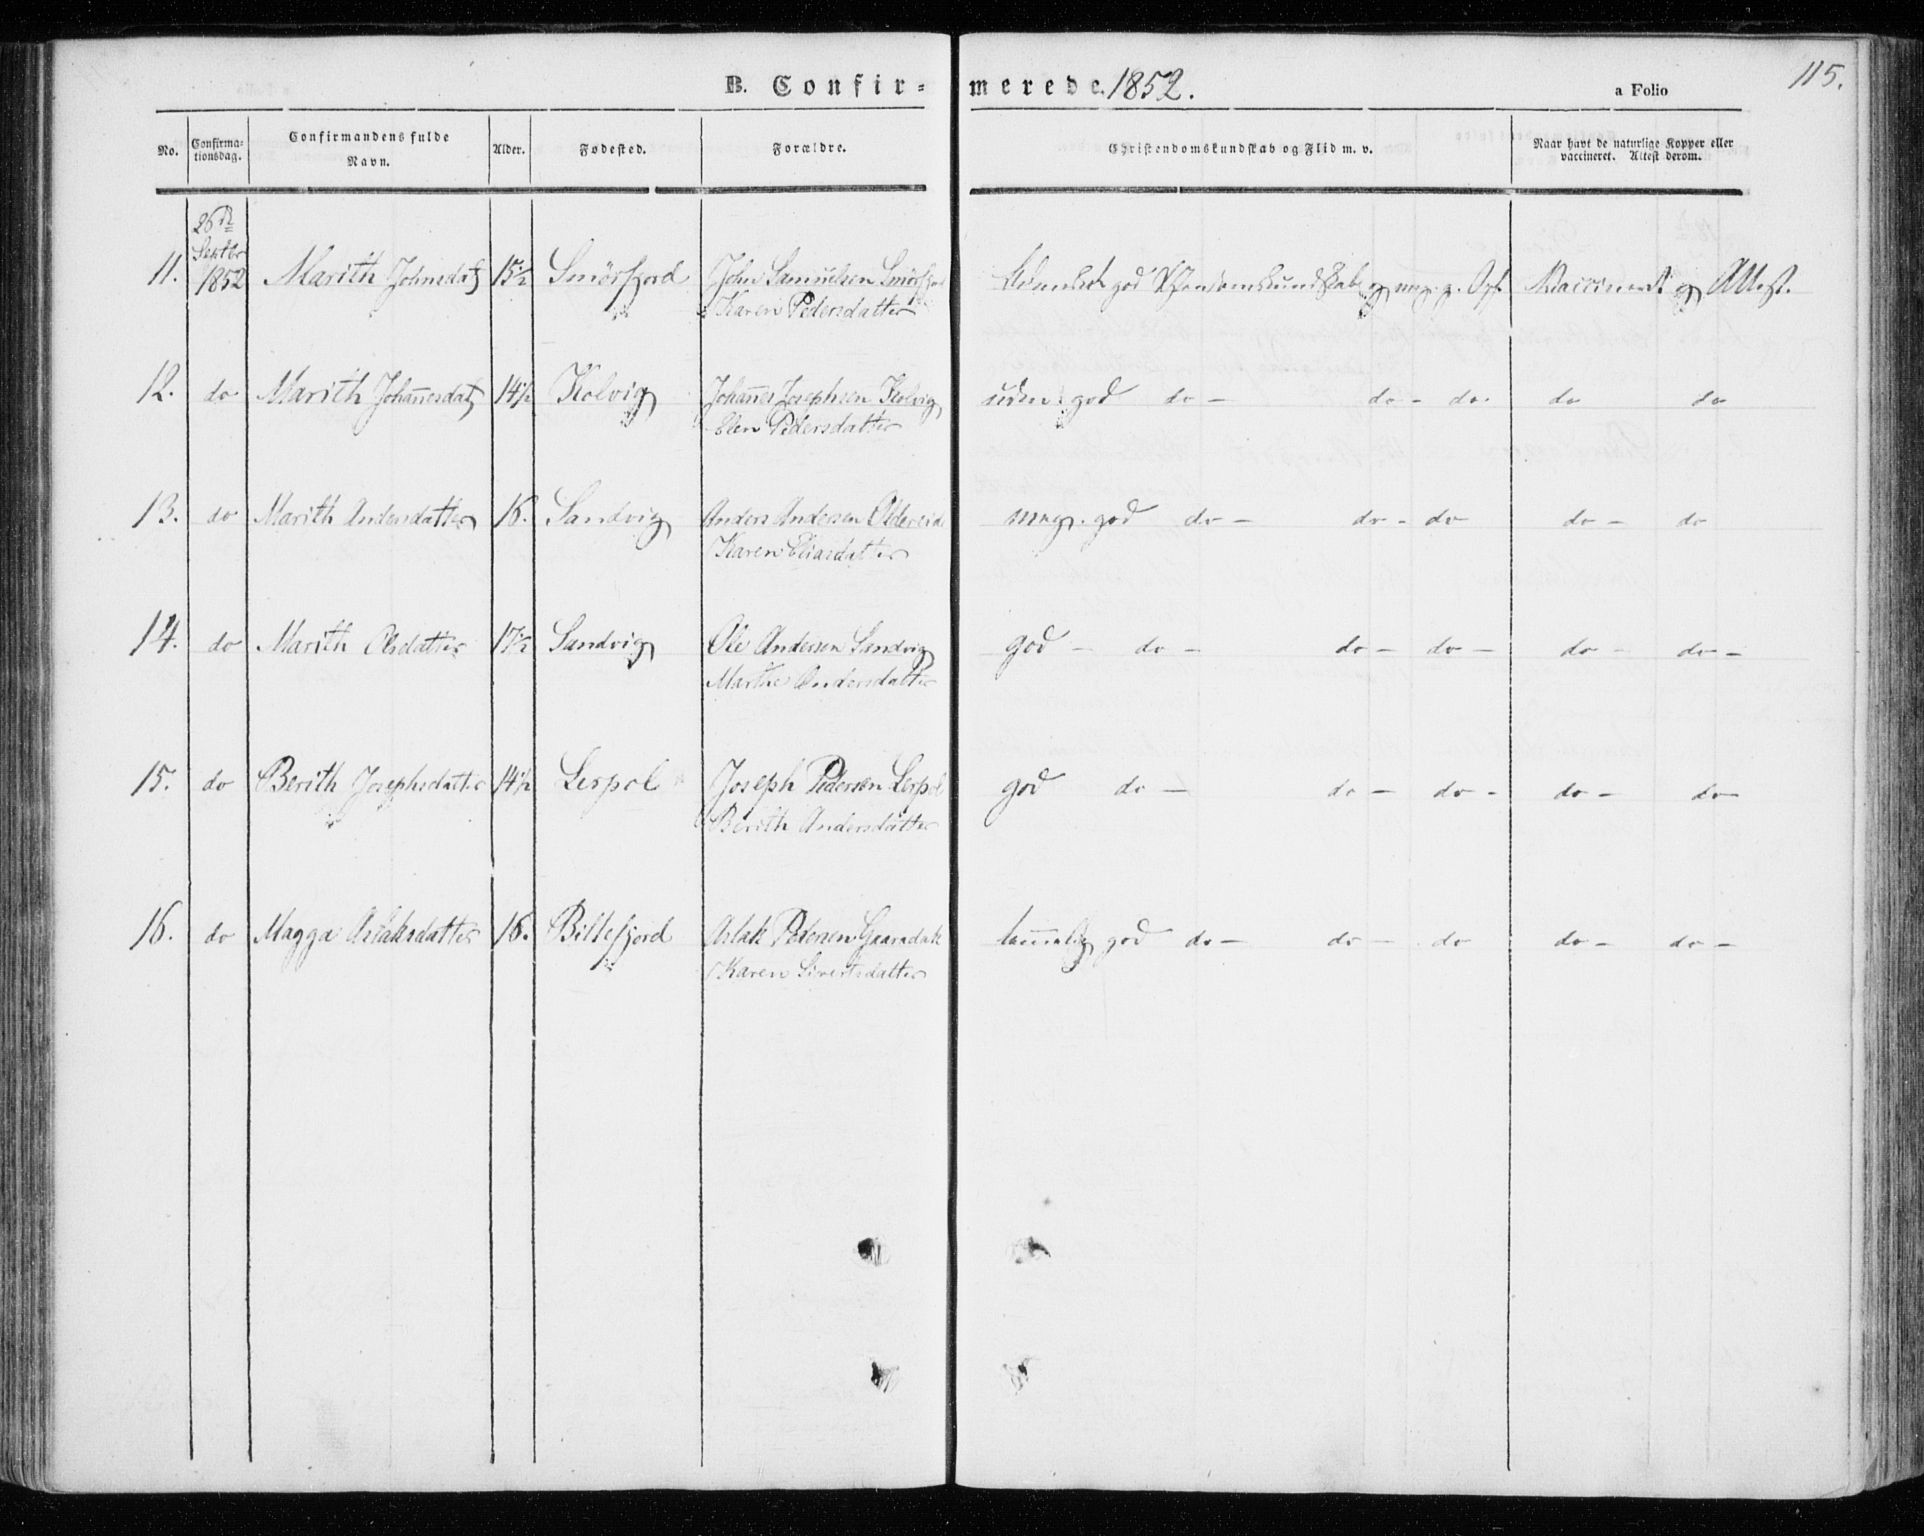 B. Confir- merede. 1852.
a Folio
115.
No.
Confirma-
tionsdag.
Confirmandens fulde
Navn.
Alder.
Fødested.
Forældre.
Christendomskundskab og Flid m. v.
Naar havt de naturlige Kopper eller
vaccineret. Attest derom.
26de
Septbr
11. 1852 Marith Johnsdatr 15½ Smörfjord John Samuelsen Smörfjord god Christendomskundskab og meg. g. Opf. Vaccineret og Attest.
Karen Pedersdatter
12. do Marith Johannesdatr 14½ Kolvig Johannes Josephsen Kolvig god do - do - do. do do
Elen Pedersdatter
13. do Marith Andersdatter 16. Sandvig Anders Andersen Oldereide meg. god do - do - do do - do
Karen Eliasdatter
14. do Marith Olsdatter 17½ Sandvig Ole Andersen Sandvig god - do - do - do - do - do -
Marthe Andersdatter
15. do Berith Josephsdatter 14½ Lerpol Joseph Pedersen Lerpol god do - do - do - do - do
Berith Andersdatter
16. do Magga Aslaksdatter 16. Billefjord Aslak Pedersen Gaaradak temmelig god do - do - do do - do -
Karen Sivertsdatter